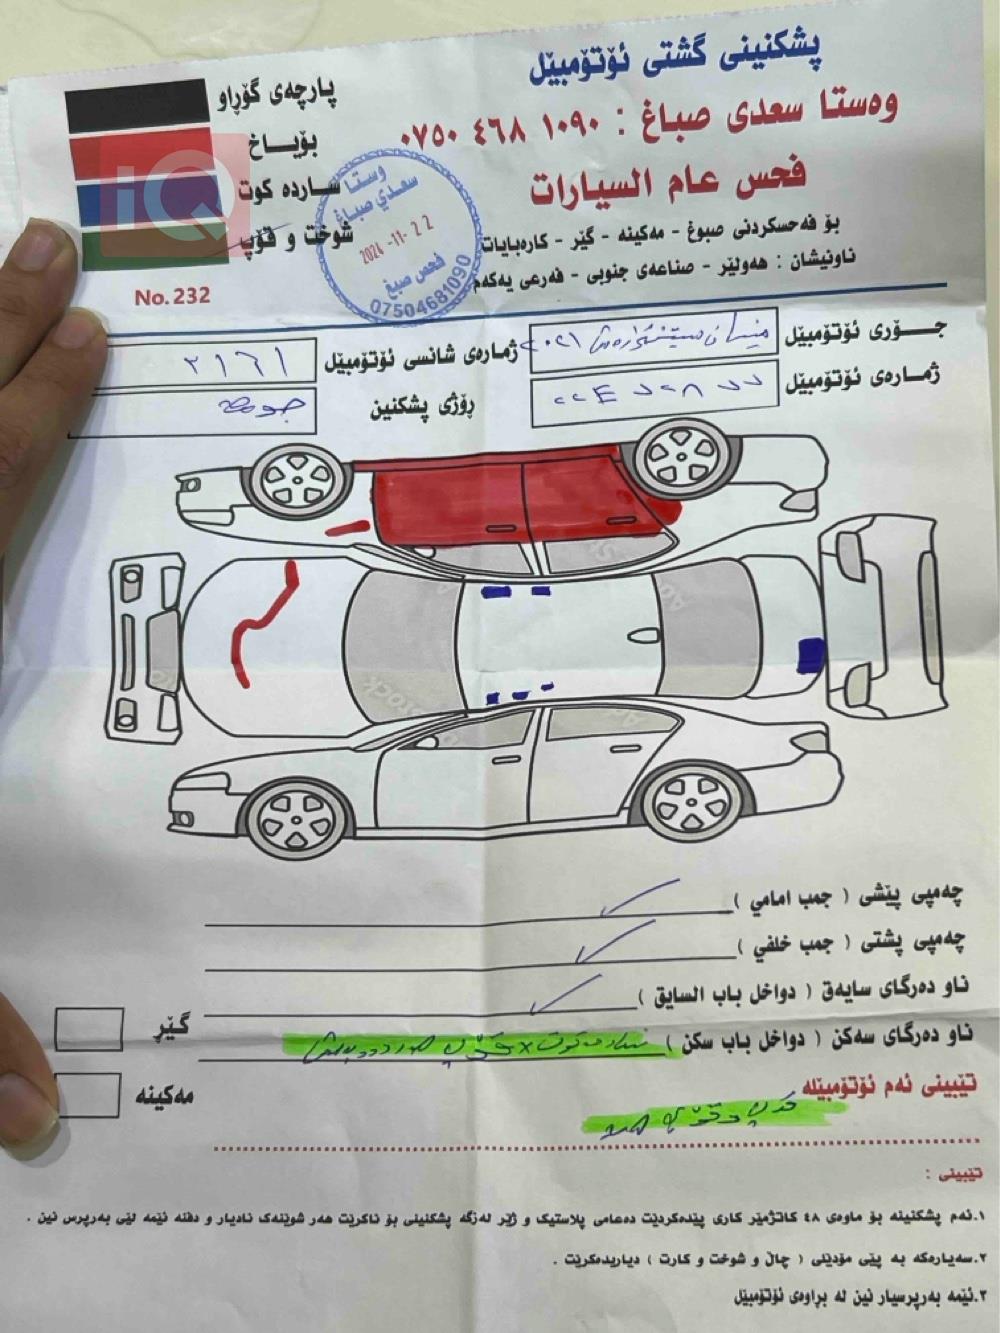 پشکنینی گشتی ئۆتۆمبێل
وەستا سعدی صباغ : ١٠٩٠ ٤٦٨ ٠٧٥٠
فحص عام السيارات
بۆ فەحسکردنی صبوغ - مەکینە - گێر - کارەبایات
ناونیشان : هەولێر - صناعەی جنوبی - فەرعی یەکەم
پارچەی گۆڕاو
بۆیاخ
ساردە کوت
شوخت و قۆپ
iQ
No. 232
وستا
سعدي صباغ
2024 -11- 2 2
فحص صبغ
07504681090
جـۆری ئۆتۆمبێل
ژمارەی شانسی ئۆتۆمبێل ٢١٦١
ژمـارەی ئۆتۆمبێل
ڕۆژی پشکنین
چەمپی پێشی ( جمب امامي )
چەمپی پشتی ( جمب خلفي )
ناو دەرگای سایەق ( دواخل باب السايق )
ناو دەرگای سەکن ( دواخل باب سکن )
گـێڕ
مەکینە
تێبینی ئەم ئۆتۆمبێلە
تێبینی :
١.ئەم پشکنینە بۆ ماوەی ٤٨ کاتژمێر کاری پێدەکرێت دەعامی پلاستیک و ژێر لەزگە پشکنینی بۆ ناکرێت هەر شوێنەک نادیار و دفنە ئێمە لێی بەرپرس نین .
٢.سەیارەکە بە پێی مۆدێلی ( چاڵ و شوخت و کارت ) دیاریدەکرێت .
٣.ئێمە بەرپرسیار نین لە بڕاوەی ئۆتۆمبێل